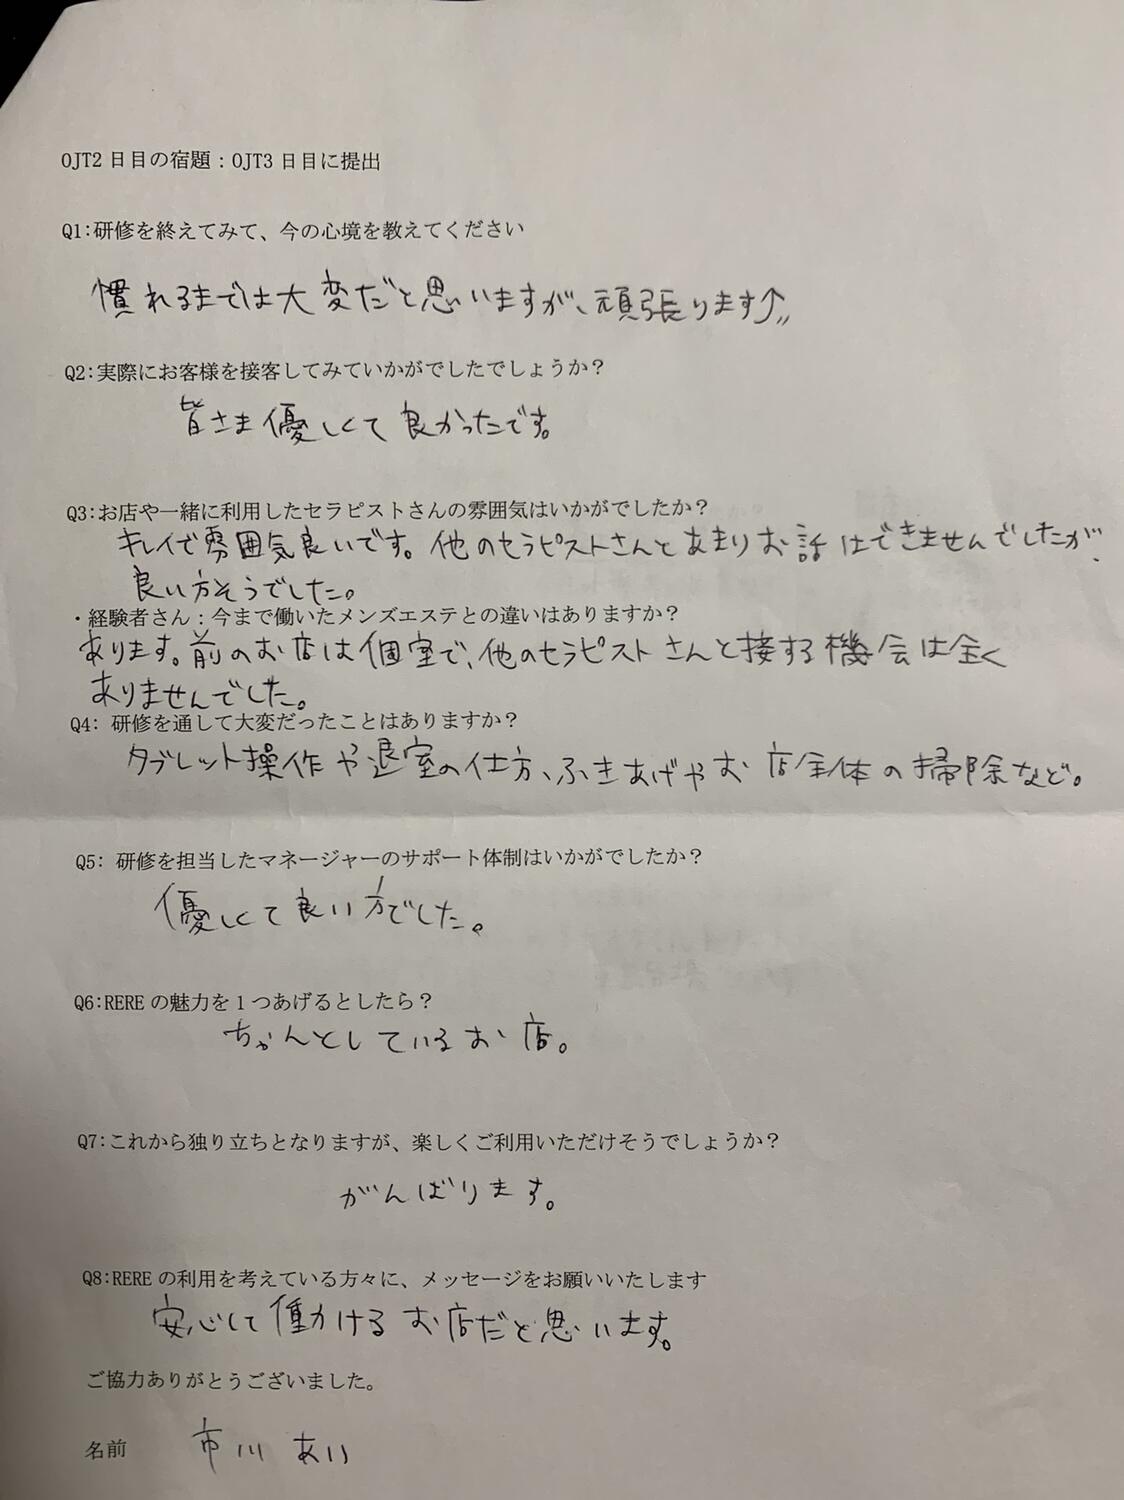 OJT2日目の宿題：OJT3日目に提出
Q1:研修を終えてみて、今の心境を教えてください
慣れるまでは大変だと思いますが、頑張ります↑〃
Q2:実際にお客様を接客してみていかがでしたでしょうか？
皆さま優しくて良かったです。
Q3:お店や一緒に利用したセラピストさんの雰囲気はいかがでしたか？
キレイで雰囲気良いです。他のセラピストさんとあまりお話はできませんでしたが、
良い方そうでした。
・経験者さん：今まで働いたメンズエステとの違いはありますか？
あります。前のお店は個室で、他のセラピストさんと接する機会は全く
ありませんでした。
Q4: 研修を通して大変だったことはありますか？
タブレット操作や退室の仕方、ふきあげやお店全体の掃除など。
Q5: 研修を担当したマネージャーのサポート体制はいかがでしたか？
優しくて良い方でした。
Q6:REREの魅力を1つあげるとしたら？
ちゃんとしているお店。
Q7:これから独り立ちとなりますが、楽しくご利用いただけそうでしょうか？
がんばります。
Q8:REREの利用を考えている方々に、メッセージをお願いいたします
安心して働けるお店だと思います。
ご協力ありがとうございました。
名前 市川 あい